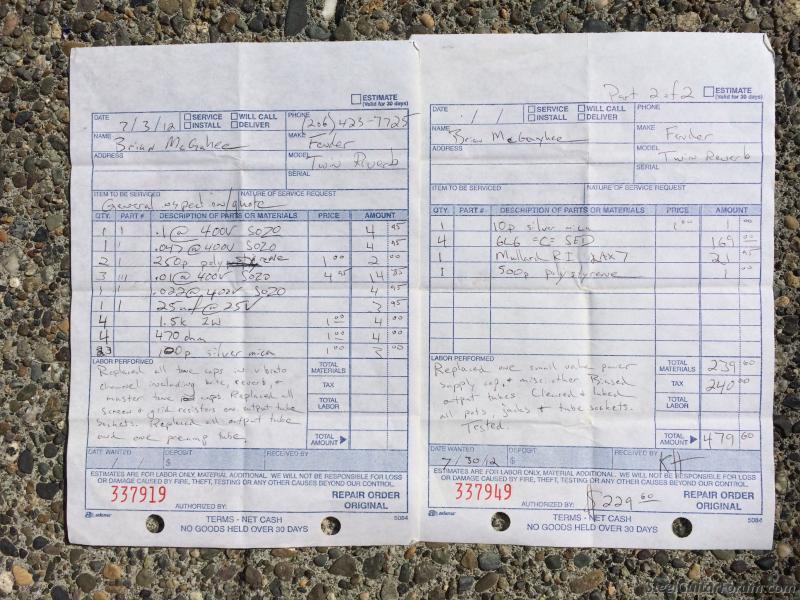 ESTIMATE
(Valid for 30 days)
DATE 7/3/12 SERVICE WILL CALL PHONE (206) 423-7725
INSTALL DELIVER
NAME Brian McGahee MAKE Fender
ADDRESS MODEL Twin Reverb
SERIAL
ITEM TO BE SERVICED NATURE OF SERVICE REQUEST
General inspection/quote
QTY. PART # DESCRIPTION OF PARTS OR MATERIALS PRICE AMOUNT
1 .1@400V SOZO 4 95
1 .047@400V SOZO 4 95
2 250p poly styrene 1 00 2 00
3 .01@400V SOZO 4 95 14 85
1 .022@400V SOZO 4 95
1 25uf@25V 3 95
4 1.5k 2W 1 00 4 00
4 470 ohm 1 00 4 00
3 100p silver mica 1 00 3 00
LABOR PERFORMED
Replaced all tone caps in vibrato
channel including bite, reverb, &
master tone caps. Replaced all
screen & grid resistors on output tube
sockets. Replaced all output tube
and one preamp tube.
TOTAL MATERIALS
TAX
TOTAL LABOR
TOTAL AMOUNT
DATE WANTED DEPOSIT RECEIVED BY
ESTIMATES ARE FOR LABOR ONLY, MATERIAL ADDITIONAL. WE WILL NOT BE RESPONSIBLE FOR LOSS
OR DAMAGE CAUSED BY FIRE, THEFT, TESTING OR ANY OTHER CAUSES BEYOND OUR CONTROL.
337919 REPAIR ORDER
AUTHORIZED BY: ORIGINAL
adams TERMS - NET CASH 5084
NO GOODS HELD OVER 30 DAYS
Part 2 of 2 ESTIMATE
(Valid for 30 days)
DATE / / SERVICE WILL CALL PHONE
INSTALL DELIVER
NAME Brian McGahee MAKE Fender
ADDRESS MODEL Twin Reverb
SERIAL
ITEM TO BE SERVICED NATURE OF SERVICE REQUEST
QTY. PART # DESCRIPTION OF PARTS OR MATERIALS PRICE AMOUNT
1 10p silver mica 1 00 1 00
4 6L6 =C= SED 169 00
1 Mullard RI 12AX7 21 95
1 500p polystyrene 1
LABOR PERFORMED
Replaced one small value power
supply cap, & misc. other. Biased
output tubes. Cleaned & lubed
all pots, jacks & tube sockets.
Tested.
TOTAL MATERIALS 239 60
TAX 240 00
TOTAL LABOR
TOTAL AMOUNT 479 60
DATE WANTED 7/30/12 DEPOSIT $ RECEIVED BY KH
ESTIMATES ARE FOR LABOR ONLY, MATERIAL ADDITIONAL. WE WILL NOT BE RESPONSIBLE FOR LOSS
OR DAMAGE CAUSED BY FIRE, THEFT, TESTING OR ANY OTHER CAUSES BEYOND OUR CONTROL.
337949 REPAIR ORDER
AUTHORIZED BY: $229 60 ORIGINAL
adams TERMS - NET CASH 5084
NO GOODS HELD OVER 30 DAYS
SteelGuitarForum.com